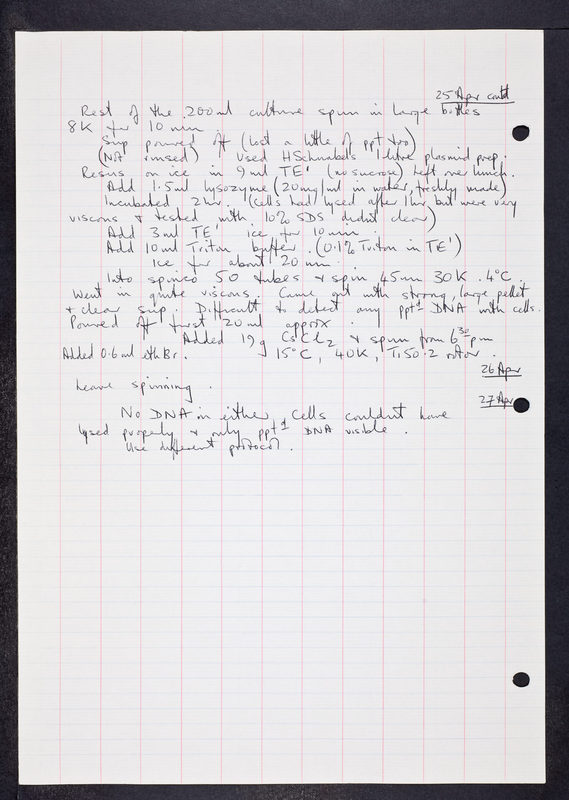 25 Apr contd
Rest of the 200ml culture spun in large bottles
8K for 10 min
Sup poured off (lost a little of ppt too)
(NA rinsed) Used HSchnabels 1 litre plasmid prep.
Resus on ice in 9ml TE' (no sucrose) Left over lunch.
Add 1.5ml lysozyme (20mg/ml in water, freshly made)
Incubated 2hr. (Cells had lysed after 1hr but were very
viscous & tested with 10% SDS didnt clear)
Add 3ml TE' ice for 10 min.
Add 10ml Triton buffer. (0.1% Triton in TE')
Ice for about 20 min.
Into 50 tubes & spin 45min 30K. 4°C.
Went in quite viscous. Came out with strong, large pellet
& clear sup. Difficult to detect any pptd DNA with cells.
Poured off first 20ml approx.
Added 19g CsCl2 & spun from 6 30 pm
Added 0.6ml eth Br. 15°C, 40K, Ti50.2 rotor.
26 Apr
Leave spinning.
27 Apr
No DNA in either, Cells couldn't have
lysed properly & only pptd DNA visible.
Use different protocol.